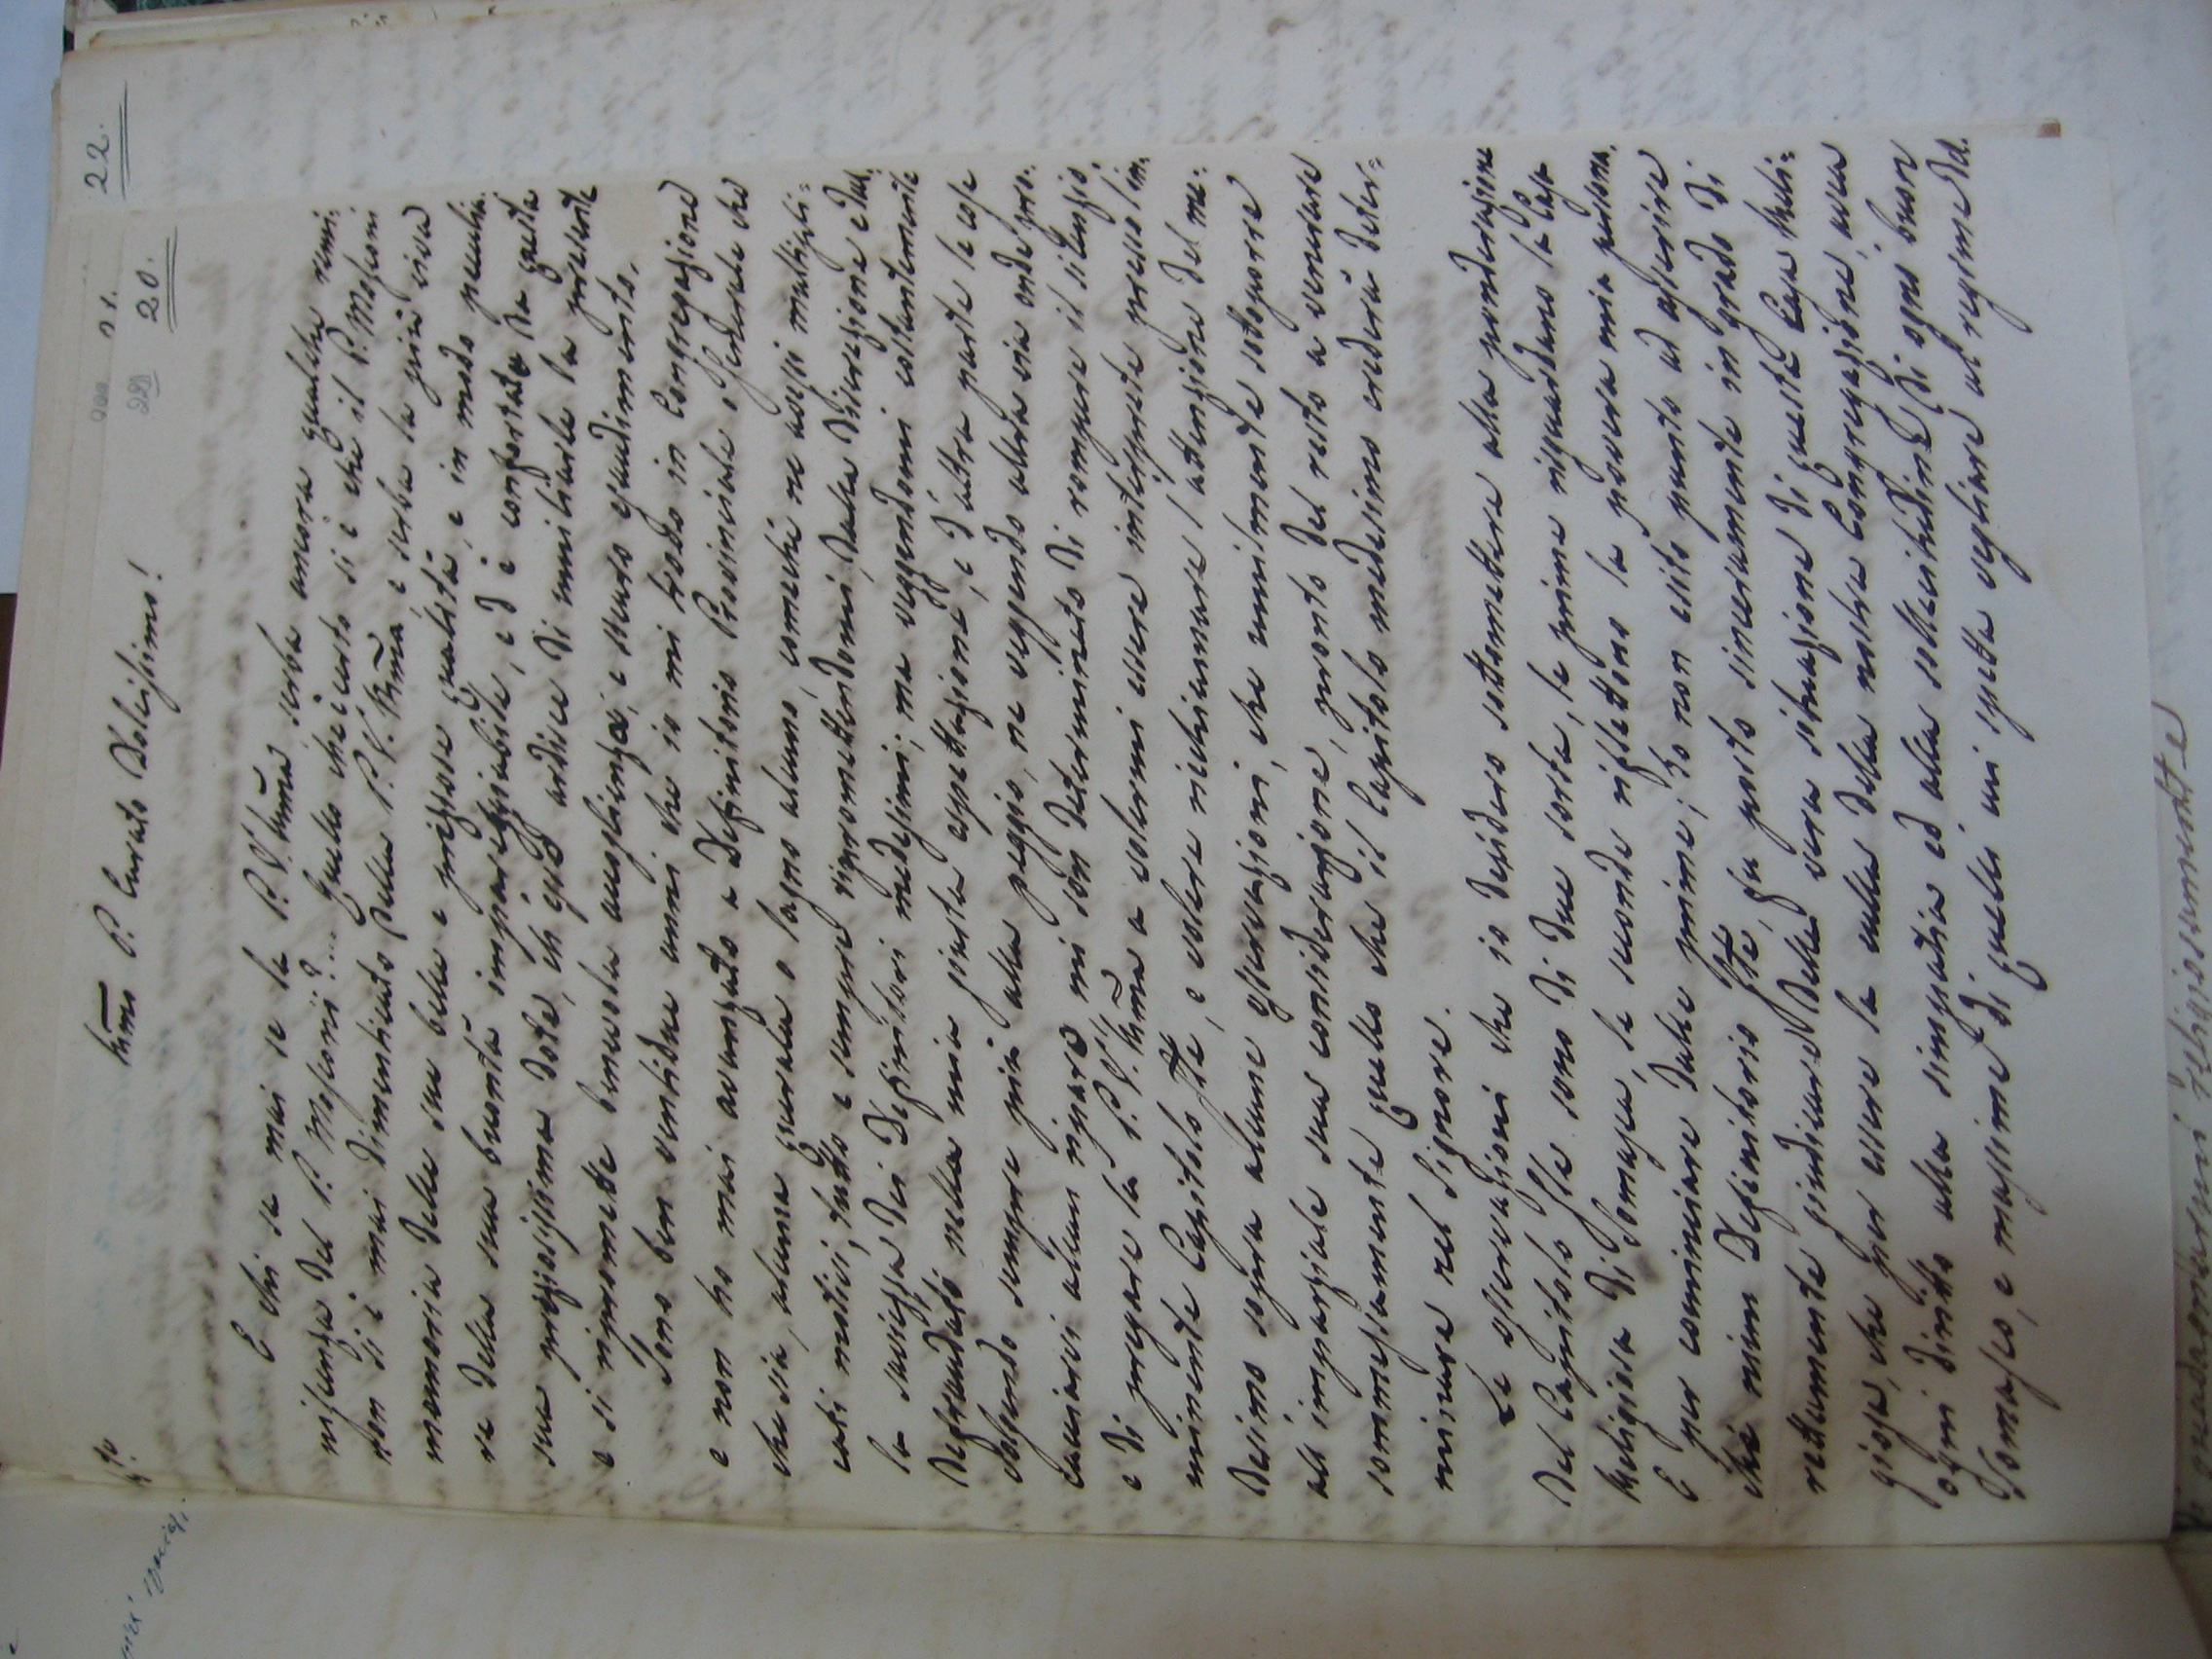 22.
n. 1.
20.
Rm̃o P. Curato Veles̃simo!
E chi sa mai se la P. V. Rma serba ancora qualche remi-
niscenza del P. Mosconi?.... Quello che è certo si è che il P. Mosconi
non si è mai dimenticato della P. V. Rma, e serba la più viva
memoria delle sue belle e preziose qualità, e in modo peculia-
re della sua bontà impareggiabile, ed è confortato da questa
sua preziosissima dote, ch'egli ardisce di umiliarle la presente
e si ripromette benevola accoglienza, e sicuro esaudimento.
Sono ben ventidue anni che io mi trovo in Congregazione
e non ho mai avanzato a Definitorio Provinciale o Generale che
che sia, alcuna querela o lagno alcuno, comechè ne avessi moltipli-
cati motivi, tutto e sempre ripromettendomi dalla discrezione e dal-
la saviezza dei Definitori medesimi; ma veggendomi costantemente
defraudato nella mia giusta espettazione, e d'altra parte le cose
volgendo sempre più alla peggio, ne veggendo altra via onde pro-
cacciarvi alcun riparo mi son determinato di rompere il silenzio
e di pregare la P. V. Rma a volermi essere interprete presso l'im-
minente Capitolo Gle, e volere richiamare l'attenzione del me-
desimo sopra alcune osservazioni, che umilmente sottopongo
all'imparziale sua considerazione, pronto del resto a venerare
sommessamente quello che il Capitolo medesimo crederà deter-
minare nel Signore.
Le osservazioni che io desidero sottomettere alla ponderazione
del Capitolo Gle sono di due sorta, le prime riguardano la Casa
Religiosa di Somasca, le seconde riflettono la povera mia persona.
E per cominciare dalle prime; Io non esito punto ad asserire
che niun Definitorio Gle, fu posto sinceramente in grado di
rettamente giudicare della vera situazione di questa Casa Reli-
giosa, che per essere la culla della nostra Congregazione, avea
ogni diritto alla simpatia ed alla sollecitudine di ogni buon
Somasco, e massime di quelli cui spetta vegliare al regime del-